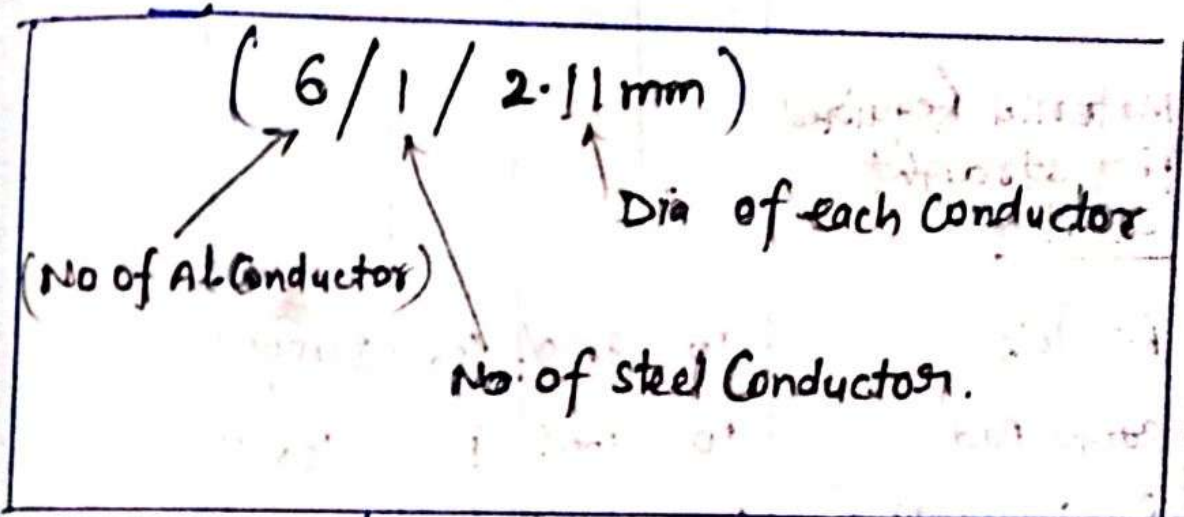 ( 6 / 1 / 2.11 mm )
Dia of each Conductor
(No of Al. Conductor)
No. of steel Conductor.